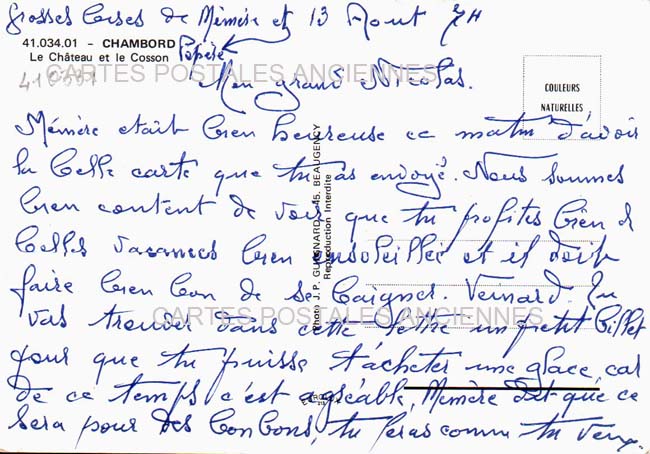 Grosses bises de Mémère et 13 Aout 74
Pépère
41.034.01 - CHAMBORD
Le Château et le Cosson
410331
CARTES POSTALES ANCIENNES
COULEURS
NATURELLES
Mon grand Nicolas.
Mémère etait bien heureuse ce matin d'avoir
la belle carte que tu as envoyé. Nous sommes
bien content de voir que tu profites bien de
belles vacances bien ensoleillée et il doit
faire bien bon de se baigner. Tu
vas trouver dans cette lettre un petit billet
pour que tu puisse t'acheter une glace, car
de ce temps c'est agréable, Mémère dit que ce
sera pour des bonbons, tu feras comme tu veux.
CARTES POSTALES ANCIENNES
Photo J. P. GUIGNARD - 45. BEAUGENCY
Reproduction Interdite